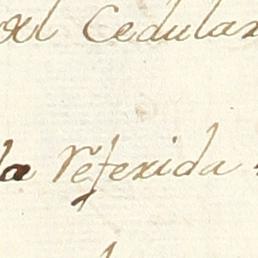 Cedulax
la referida